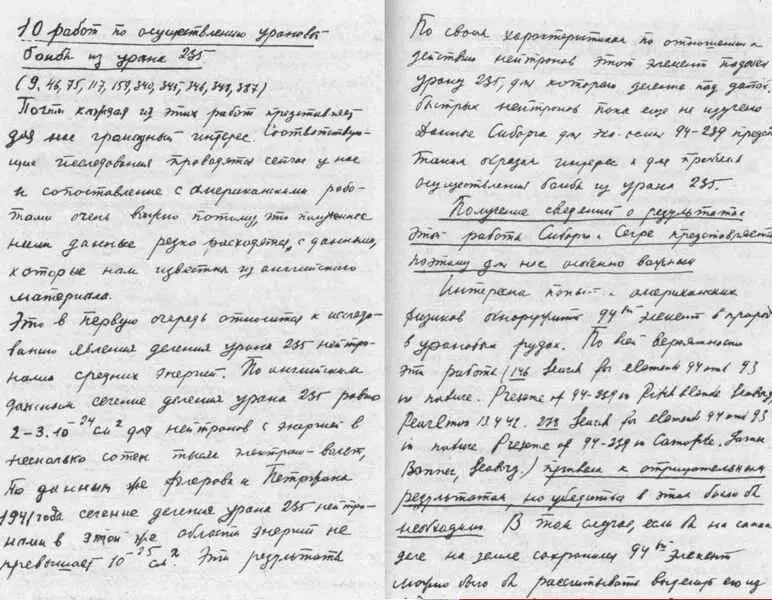 10 работ по осуществлению урановой
бомбы из урана 235
(9, 46, 75, 117, 159, 340, 345, 346, 348, 387)
Почти каждая из этих работ представляет
для нас громадный интерес. Соответствую-
щие исследования проводятся сейчас у нас
и сопоставление с американскими рабо-
тами очень важно потому, что полученное
ними данные резко расходятся с данными,
которые нам известны из английского
материала.
Это в первую очередь относится к исследо-
ванию явления деления урана 235 нейтро-
нами средних энергий. По английским
данным сечение деления урана 235 равно
2-3.10⁻²⁴ см² для нейтронов с энергией в
несколько сотен тысяч электрон-вольт,
По данным же Флерова и Петржака
1941 года сечение деления урана 235 нейтро-
нами в этой же области энергий не
превышает 10⁻²⁵ см². Эти результаты
По своим характеристикам по отношению к
действию нейтронов этот элемент подобен
урану 235, для которого деление под
быстрых нейтронов пока еще не изучено
Данные Сиборга для эка-осмия 94-239
таким образом интерес и для проблемы
осуществления бомбы из урана 235.
Получение сведений о результатах
этой работы Сиборга и Сегре представляется
поэтому для нас особенно важным
Интересна американских
физиков обнаружить 94ый элемент в
в урановых рудах. По всей вероятности
эти работы (146 Search for elements 94 and 93
in nature. Presense of 94-239 in Pitchblende Seaborg
Pearlman 13.4.42. 273 Search for elements 94 and 93
in nature Presense of 94-239 in
Bonner, Seaborg.) привела к отрицательным
результатам, но убедиться в этом было бы
необходимо. В том случае, если бы на самом
деле на земле сохранился 94ый элемент
можно было бы рассчитывать выделить его из